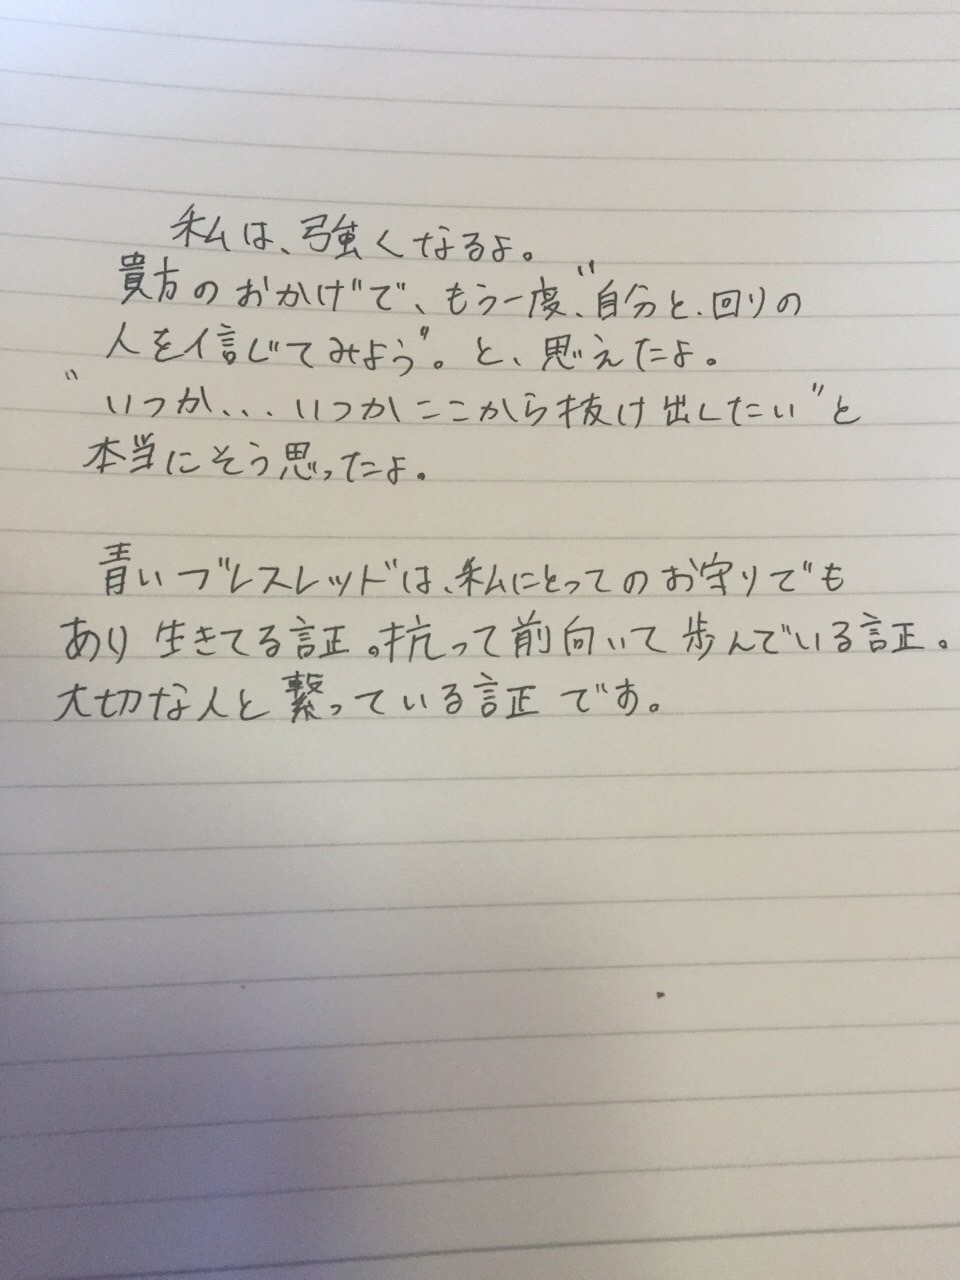 私は、強くなるよ。
貴方のおかげで、もう一度、"自分と、回りの
人を信じてみよう"。と、思えたよ。
"いつか、、、いつかここから抜け出したい"と
本当にそう思ったよ。
青いブレスレッドは、私にとってのお守りでも
あり 生きてる証。抗って前向いて歩んでいる証。
大切な人と繋っている証です。